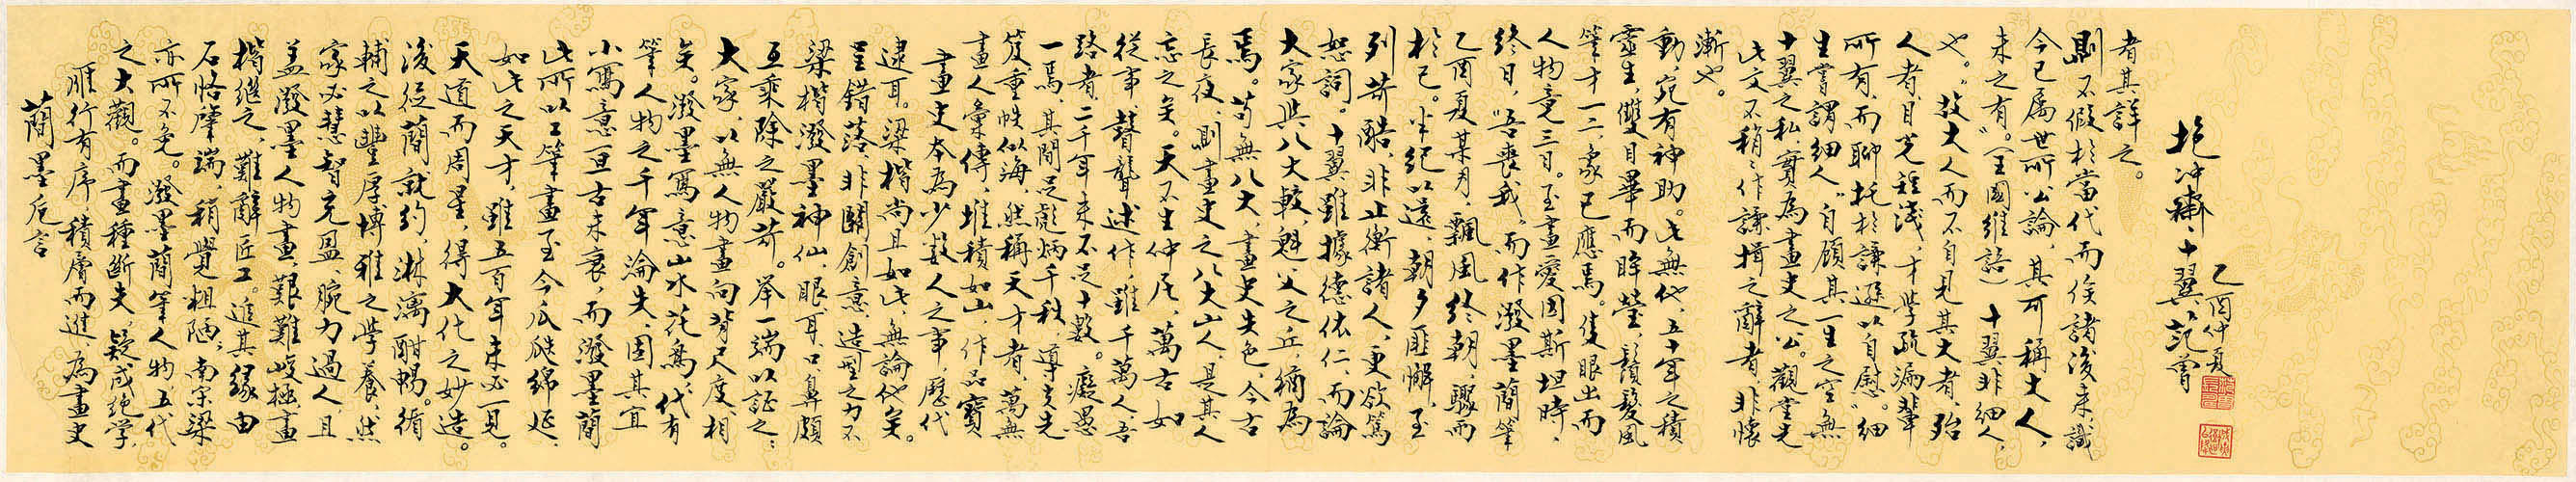 簡墨卮言
雁行有序,積層而進,為畫史
之大觀。而畫種斷夫,疑成絕學,
亦所不免。潑墨簡筆人物,五代
石恪肇端,稍覺粗陋,南宋梁
楷繼之,難辭匠工。追其緣由
蓋潑墨人物畫,艱難峻極,畫
家必慧智充盈,腕力過人,且
輔之以豐厚博雅之學養,然
後從簡就約,淋漓酣暢。循
天道而周星,得大化之妙造。
如此之天才,雖五百年未必一見。
此所以工筆畫至今瓜瓞綿延,
小寫意亙古未衰,而潑墨簡
筆人物之千年淪失,固其宜
矣。潑墨寫意山水花鳥,代有
大家,以無人物畫向背尺度,相
互乘除之嚴苛。舉一端以証之:
梁楷潑墨神仙,眼、耳、口、鼻頗
呈錯落,非關創意,造型之力不
逮耳。梁楷尚且如此,無論他矣。
畫史本為少數人之事,歷代
畫人彙傳,堆積如山,作品寶
笈重帙似海,然稱天才者,萬無
一焉,其間足彪炳千秋,導夫先
路者,二千年來不足十數。癡愚
從事,瞽聾述作,雖千萬人,吾
忘之矣。天不生仲尼,萬古如
長夜,則畫史之八大山人,是其人
焉。苟無八大,畫史失色,今古
大家與八大較,魁父之丘,猶為
恕詞。十翼雖據德依仁,而論
列苛酷,非止衡諸人,更欲篤
於己。半紀以還,朝夕匪懈,至
乙酉夏某月,飄風終朝,驟雨
終日,"吾喪我",而作潑墨簡筆
人物竟三日。至畫愛因斯坦時,
筆才一二,象已應焉。隻眼出而
靈生,雙目畢而眸瑩,鬚髮風
動,宛有神助。此無他,五十年之積
漸也。
此文不稍稍作謙揖之辭者,非懷
十翼之私,實為畫史之公。觀堂先
生嘗謂細人"自顧其一生之空無
所有,而聊托於謙遜以自慰。"細
人者,目光短淺,才學疏漏輩
也。"故大人而不自見其大者,殆
未之有。"(王國維語)十翼非細人,
今已屬世所公論,其可稱大人,
則不假於當代而俟諸後來,識
者其詳之。
抱沖齋十翼范曾
乙酉仲夏